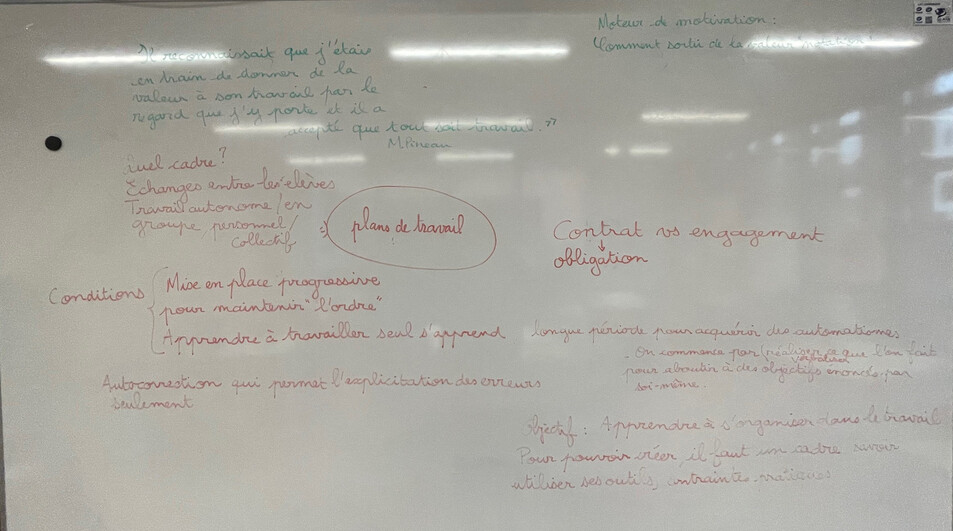 Moteur de motivation :
Comment sortir de la valeur "notation"
Il reconnaissait que j'étais
en train de donner de la
valeur à son travail par le
regard que j'y porte et il a
accepté que tout soit travail. "
M Pineau
Quel cadre ?
Échanges entre les élèves
Travail autonome / en
groupe, personnel /
collectif
plans de travail
Contrat vs engagement
↓
obligation
Conditions
Mise en place progressive
pour maintenir "l'ordre"
Apprendre à travailler seul s'apprend
longue période pour acquérir des automatismes
- On commence par (réaliser ce que l'on fait
pour aboutir à des objectifs énoncés par
soi-même.
Autocorrection qui permet l'explicitation des erreurs
seulement
Objectif : Apprendre à s'organiser dans le travail
Pour pouvoir créer, il faut un cadre, savoir
utiliser ses outils, contrainte, pratiques